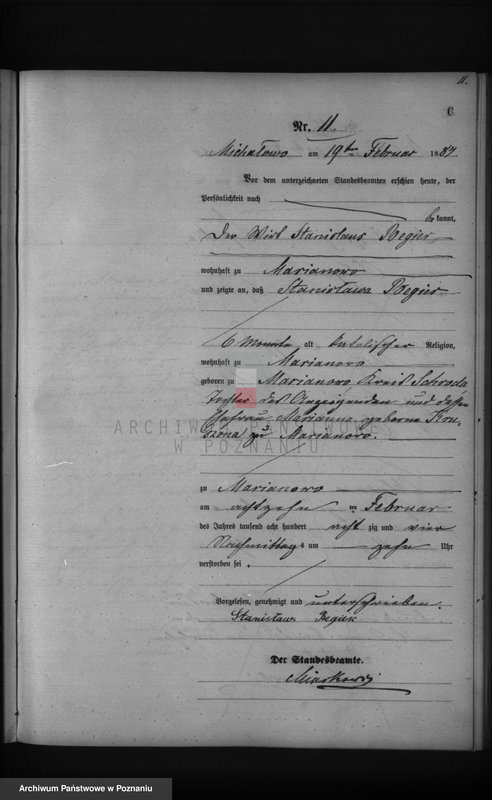 11.
C
Nr. 11.
Michałowo am 19ten Februar 1884
Vor dem unterzeichneten Standesbeamten erschien heute, der
Persönlichkeit nach
be kannt,
Der Wirt Stanislaus Begier
wohnhaft zu Marianowo
und zeigte an, daß Stanisława Begier
6 Monate alt katolischer Religion,
wohnhaft zu Marianowo
geboren zu Marianowo Kreis Schroda
Tochter des Anzeigenden und dessen
Ehefrau Marianna geborne
zu Marianowo.
ARCHIWUM PAŃSTWOWE
W POZNANIU
zu Marianowo
am achtzehn ten Februar
des Jahres tausend acht hundert acht zig und vier
Nachmittag s um zehn Uhr
verstorben sei.
Vorgelesen, genehmigt und unterschrieben.
Stanisław Begier
Der Standesbeamte.
Archiwum Państwowe w Poznaniu